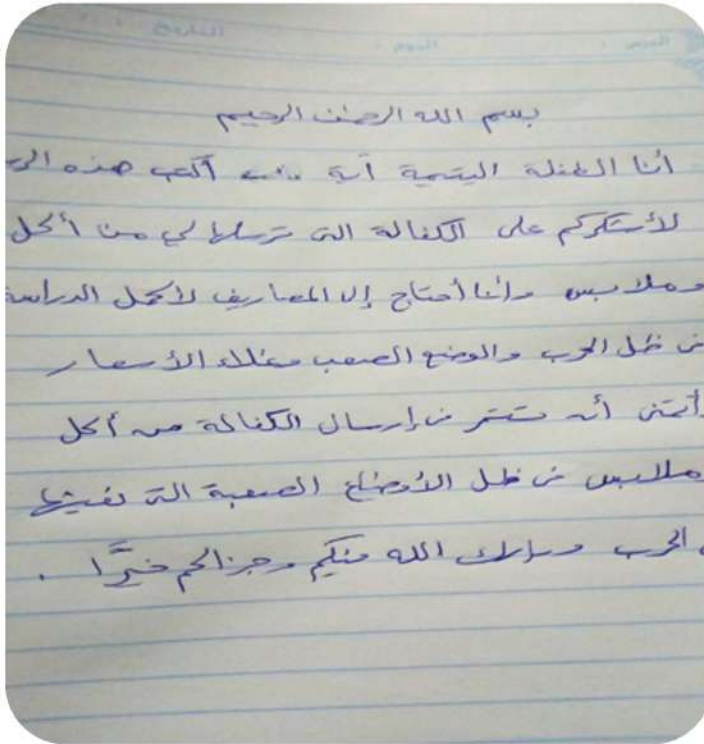 بسم الله الرحمن الرحيم
أنا الطفلة اليتيمة آية أكتب هذه
لأشكركم على الكفالة التي ترسلها لي من أكل
وملابس وأنا أحتاج إلى المصاريف لأكمل الدراسة
في ظل الحرب والوضع الصعب وغلاء الأسعار
وأتمنى أن تستمر في إرسال الكفالة من أكل
وملابس في ظل الأوضاع الصعبة التي نعيشها
الحرب وبارك الله فيكم وجزاكم خيرًا .